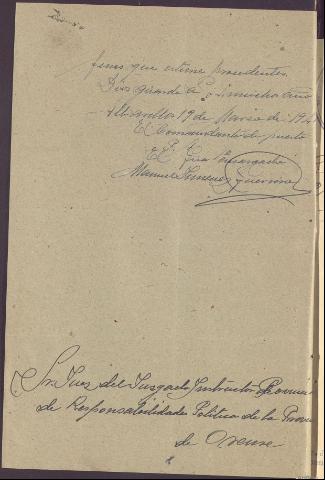 fines que estime procedentes.
Dios guarde a V. muchos años
19 de Marzo de 194
El Comandante de puesto
Manuel Jimenez Guerrero
Sr. Juez del Juzgado Instructor Provincial
de Responsabilidades Politica de la Provin
de Orense